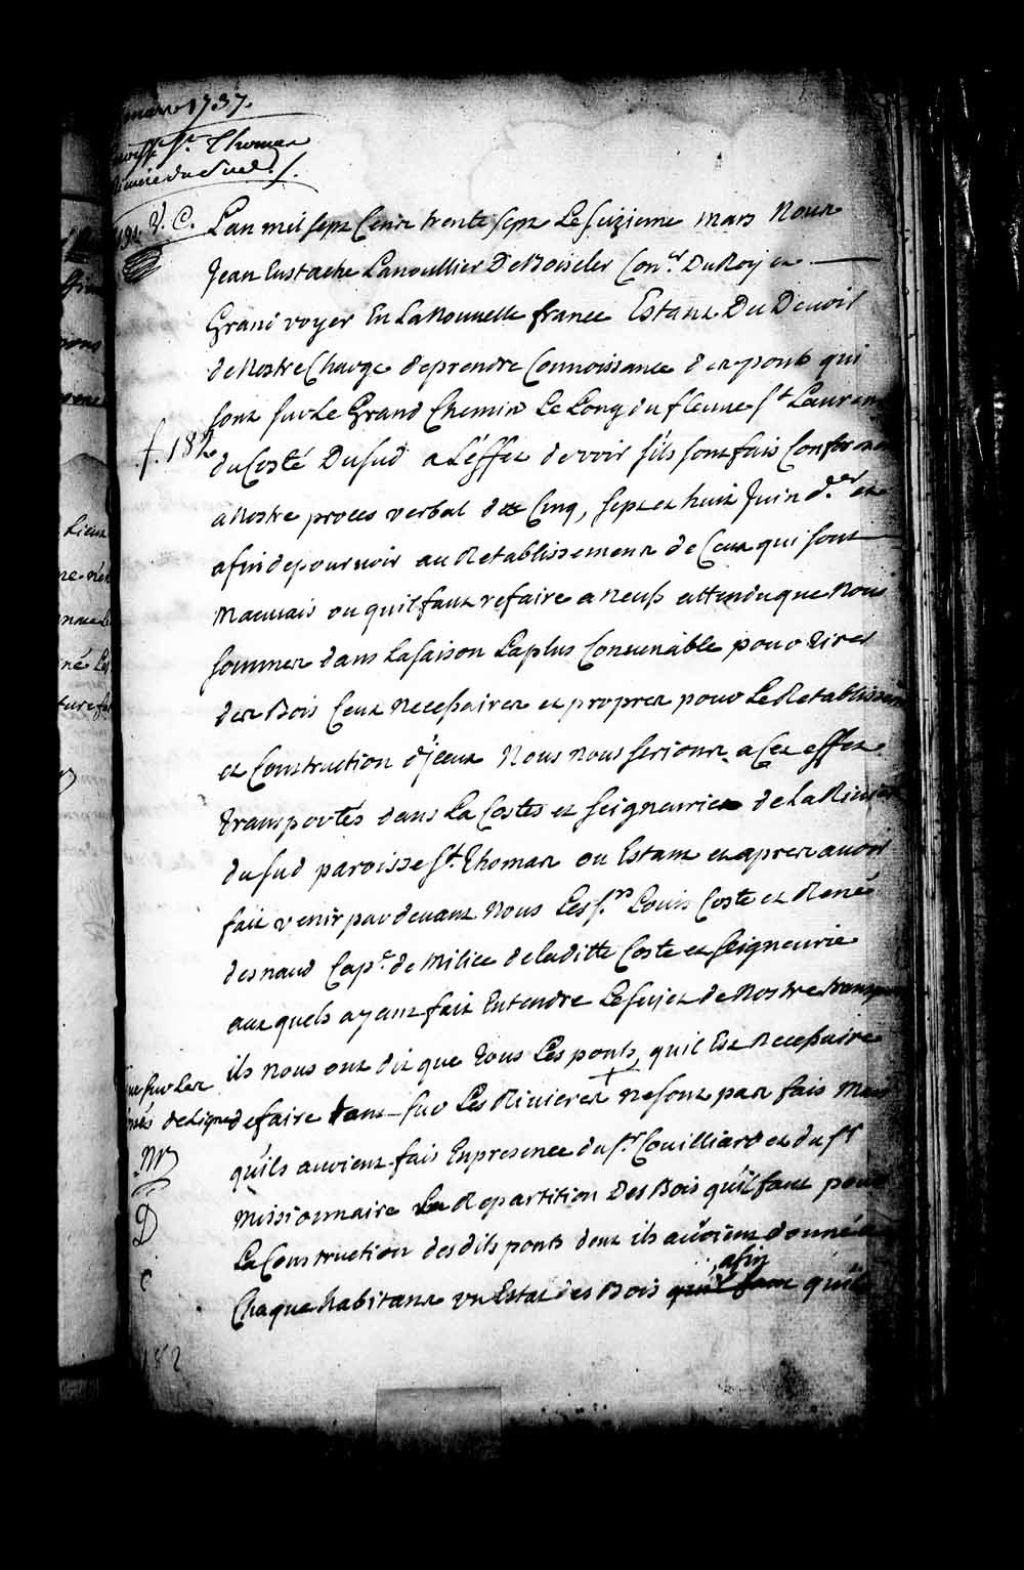 mars 1737.
paroisse St. Thomas
Riviere du Sud /.
V. C.
L'an mil sept Cens trente sept Le seizieme mars Nous
Jean Eustache Lanoullier DeBoisclerc Con.er Du Roy et
Grand voyer En La Nouvelle france Estant Du Devoir
de Nostre Charge de prendre Connoissance des ponts qui
sont sur Le Grand Chemin Le Long du fleuve St Laurent
f. 182
du Costé Du Sud a L'éffet de voir s'ils sont fais Conform
a Nostre proces verbal des Cinq, sept et huit Juin d.er et
afin de pourvoir au Retablissement de Ceux qui sont
Mauvais ou quil faut refaire a Neufs attendu que Nous
sommes dans La saison La plus Convenable pour tirer
des Bois Ceux Necessaires et propres pour Le Retablissem
et Construction d'jceux Nous nous serions a Cet effet
transportés dans La Costes et seigneuries de la Riviere
du sud paroisse St. Thomas ou Estant et apres avoir
fait venir par devant Nous Les S.rs Louis Coste et René
desnaud Cap.e de Milice de laditte Coste et seigneurie
aux quels ayant fait Entendre Le sujet de Nostre transport
ils Nous ont dit que tous Les ponts, quil Est Necessaire
sur les
de Ligne
de faire tant sur Les Rivieres ne sont pas fais Mais
quils avoient fais En presence du S.r Couilliard et du Sr
Missionnaire La Repartition Des Bois quil faut pour
La Construction desdits ponts dont ils avoient donné a
Chaque habitant un Estat des Bois quil faut afin quils
182